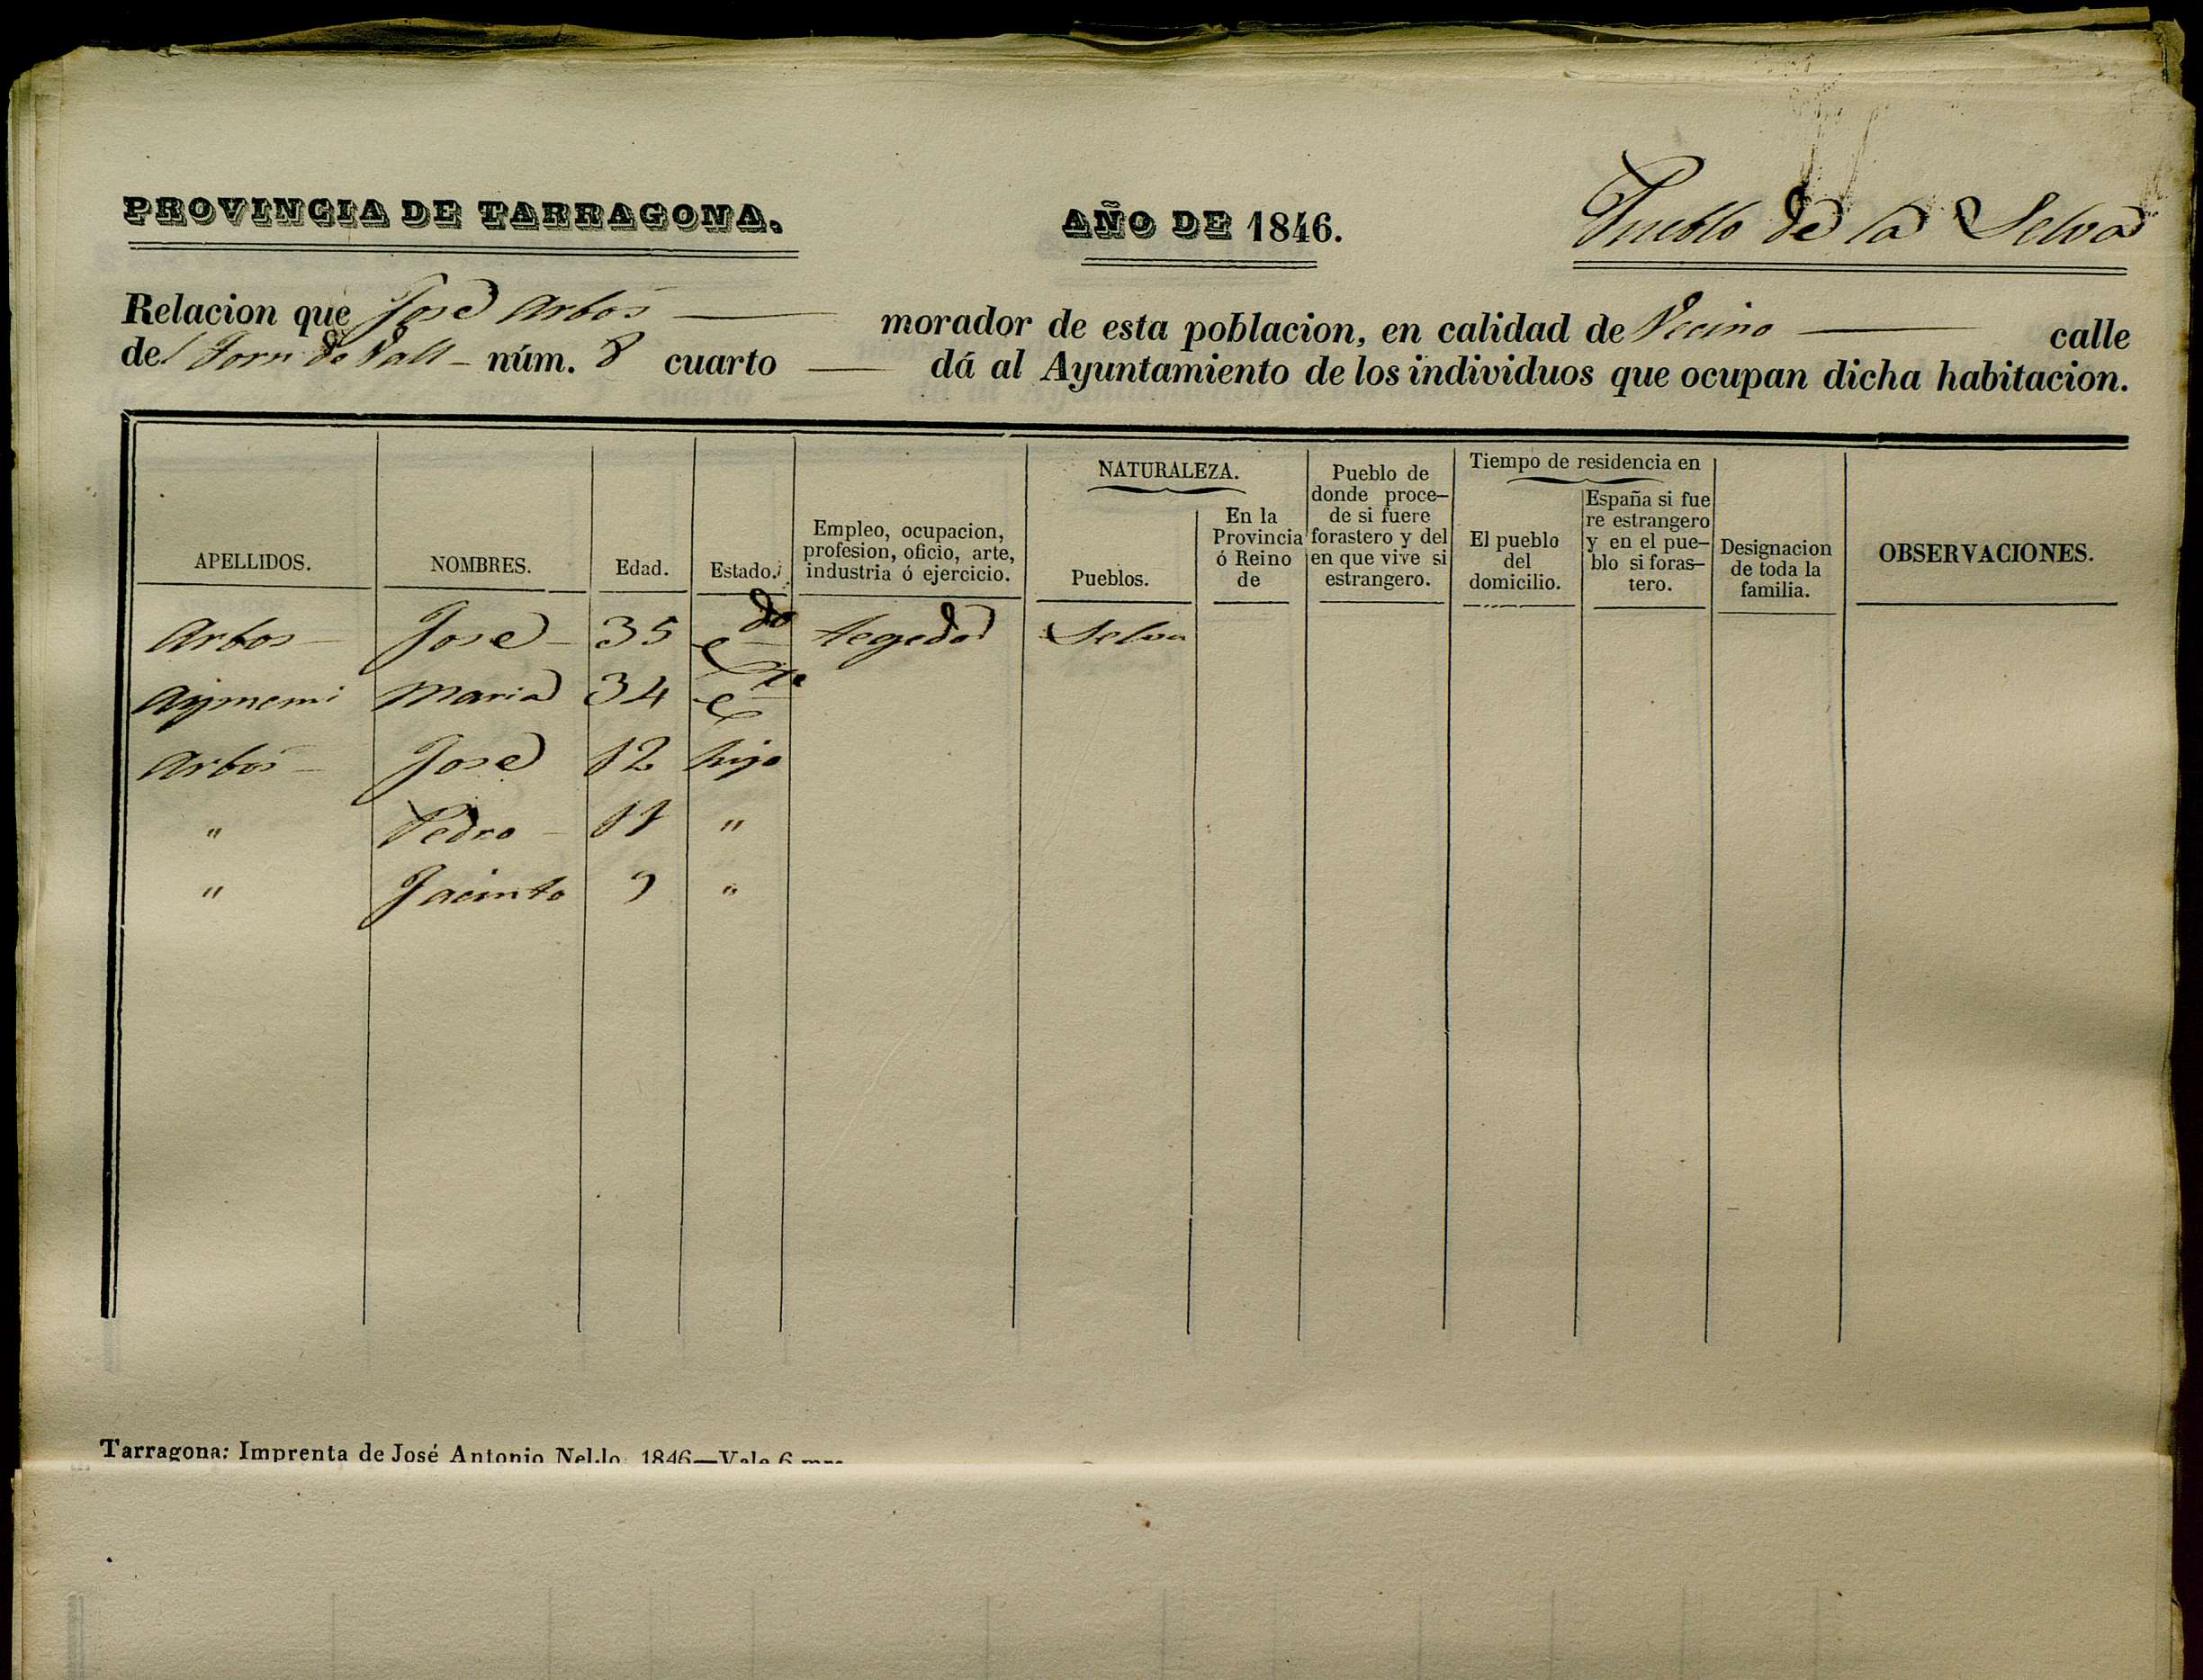 PROVINCIA DE TARRAGONA. AÑO DE 1846. Pueblo de la Selva
Relacion que José Arbos morador de esta poblacion, en calidad de Vecino calle
del Forn de Vall núm. 8 cuarto — dá al Ayuntamiento de los individuos que ocupan dicha habitacion.
APELLIDOS. NOMBRES. Edad. Estado. Empleo, ocupacion, profesion, oficio, arte, industria ó ejercicio. NATURALEZA. Pueblos. En la Provincia ó Reino de Pueblo de donde proce–de si fuere forastero y del en que vive si estrangero. Tiempo de residencia en El pueblo del domicilio. España si fue re estrangero y en el pue–blo si foras–tero. Designacion de toda la familia. OBSERVACIONES.
Arbos José 35 c.do tegedod Selva
Aymemi Maria 34 c.
Arbos José 12 hijo
" Pedro 11 "
" Jacinto 9 "
Tarragona: Imprenta de José Antonio Nel·lo. 1846—Vale 6 mrs